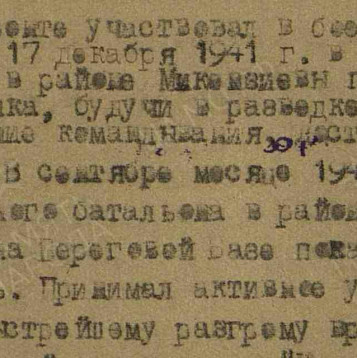 участвовал в бое
17 декабря 1941 г. в
в районе Микензиевы г
ка, будучи в разведке
командывания, дост
В сентябре месяце 194
батальона в район
на Береговой Базе пока
Принимал активное у
разгрому вр